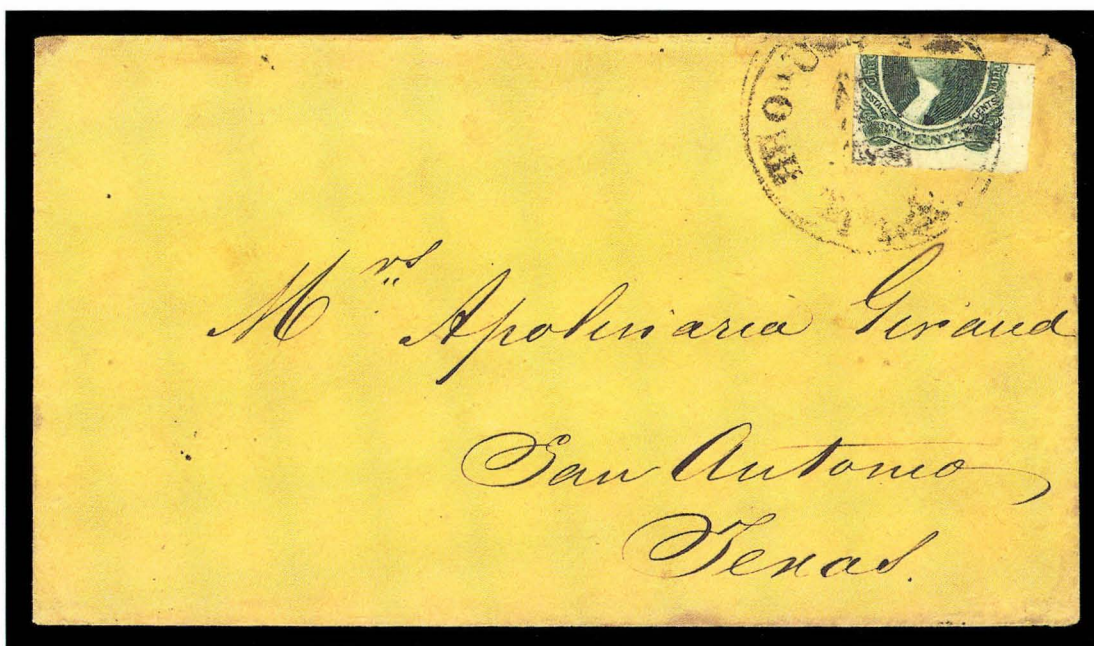 HOUS
POSTAGE CENTS
TWENTY
Mrs Apolinaria Giraud
San Antonio
Texas.